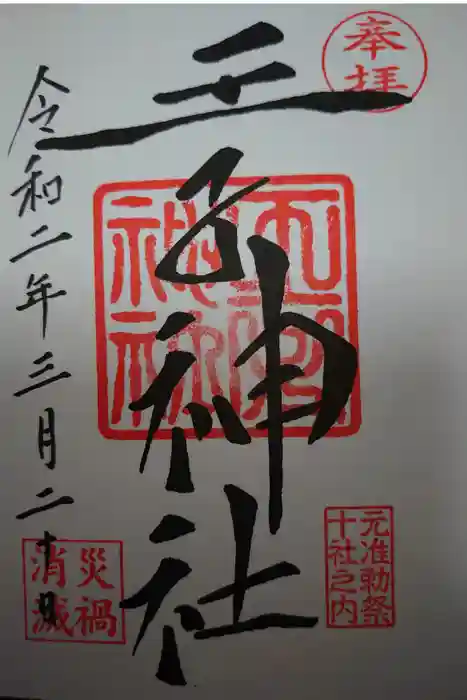 奉拝
王子神社
令和二年三月二十日
元准勅祭
十社之内
災禍
消滅